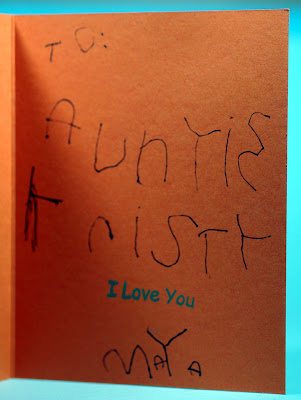 TO:
AUnTiE
KriSTY
I Love You
MAYA